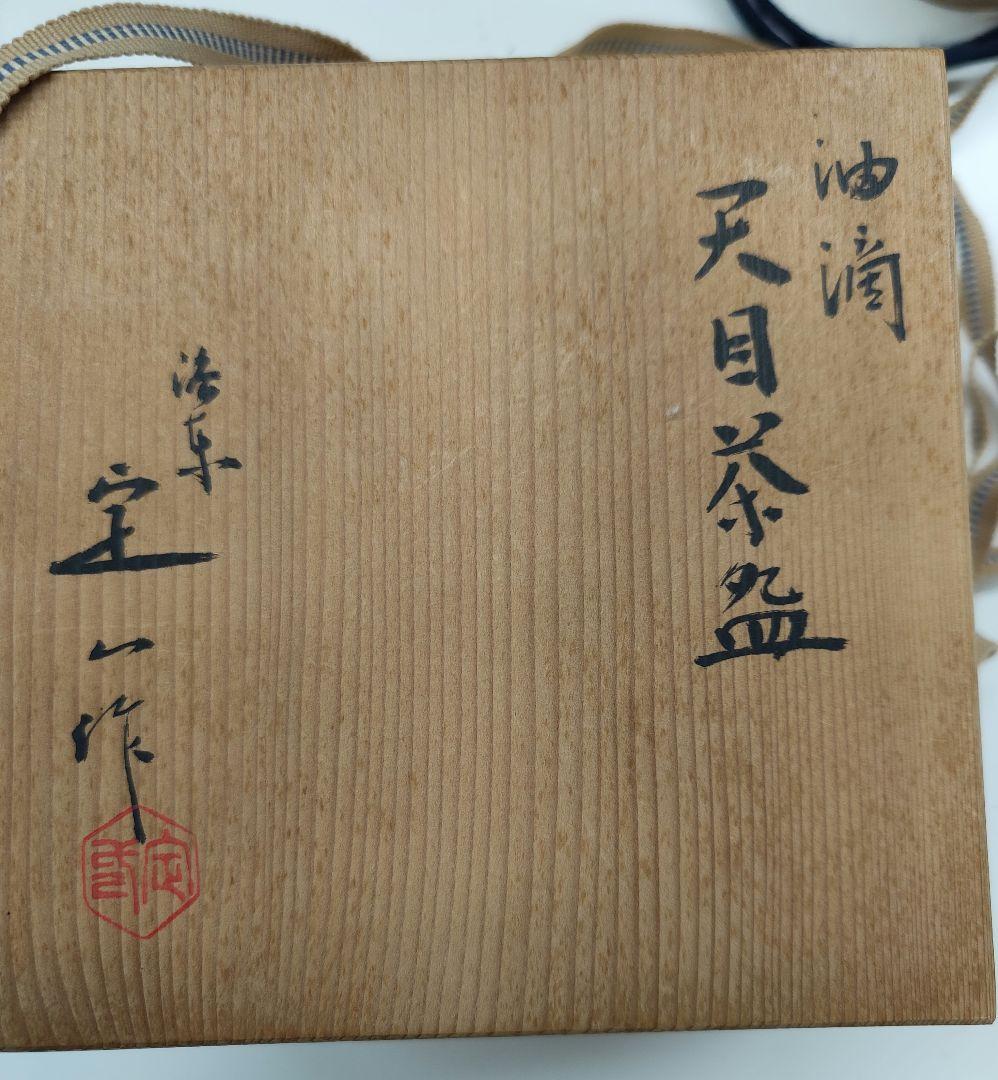 油滴
天目茶盌
洛東
定山作